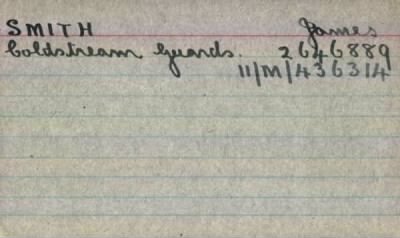 SMITH James
Coldstream Guards. 2646889
11/M/436314